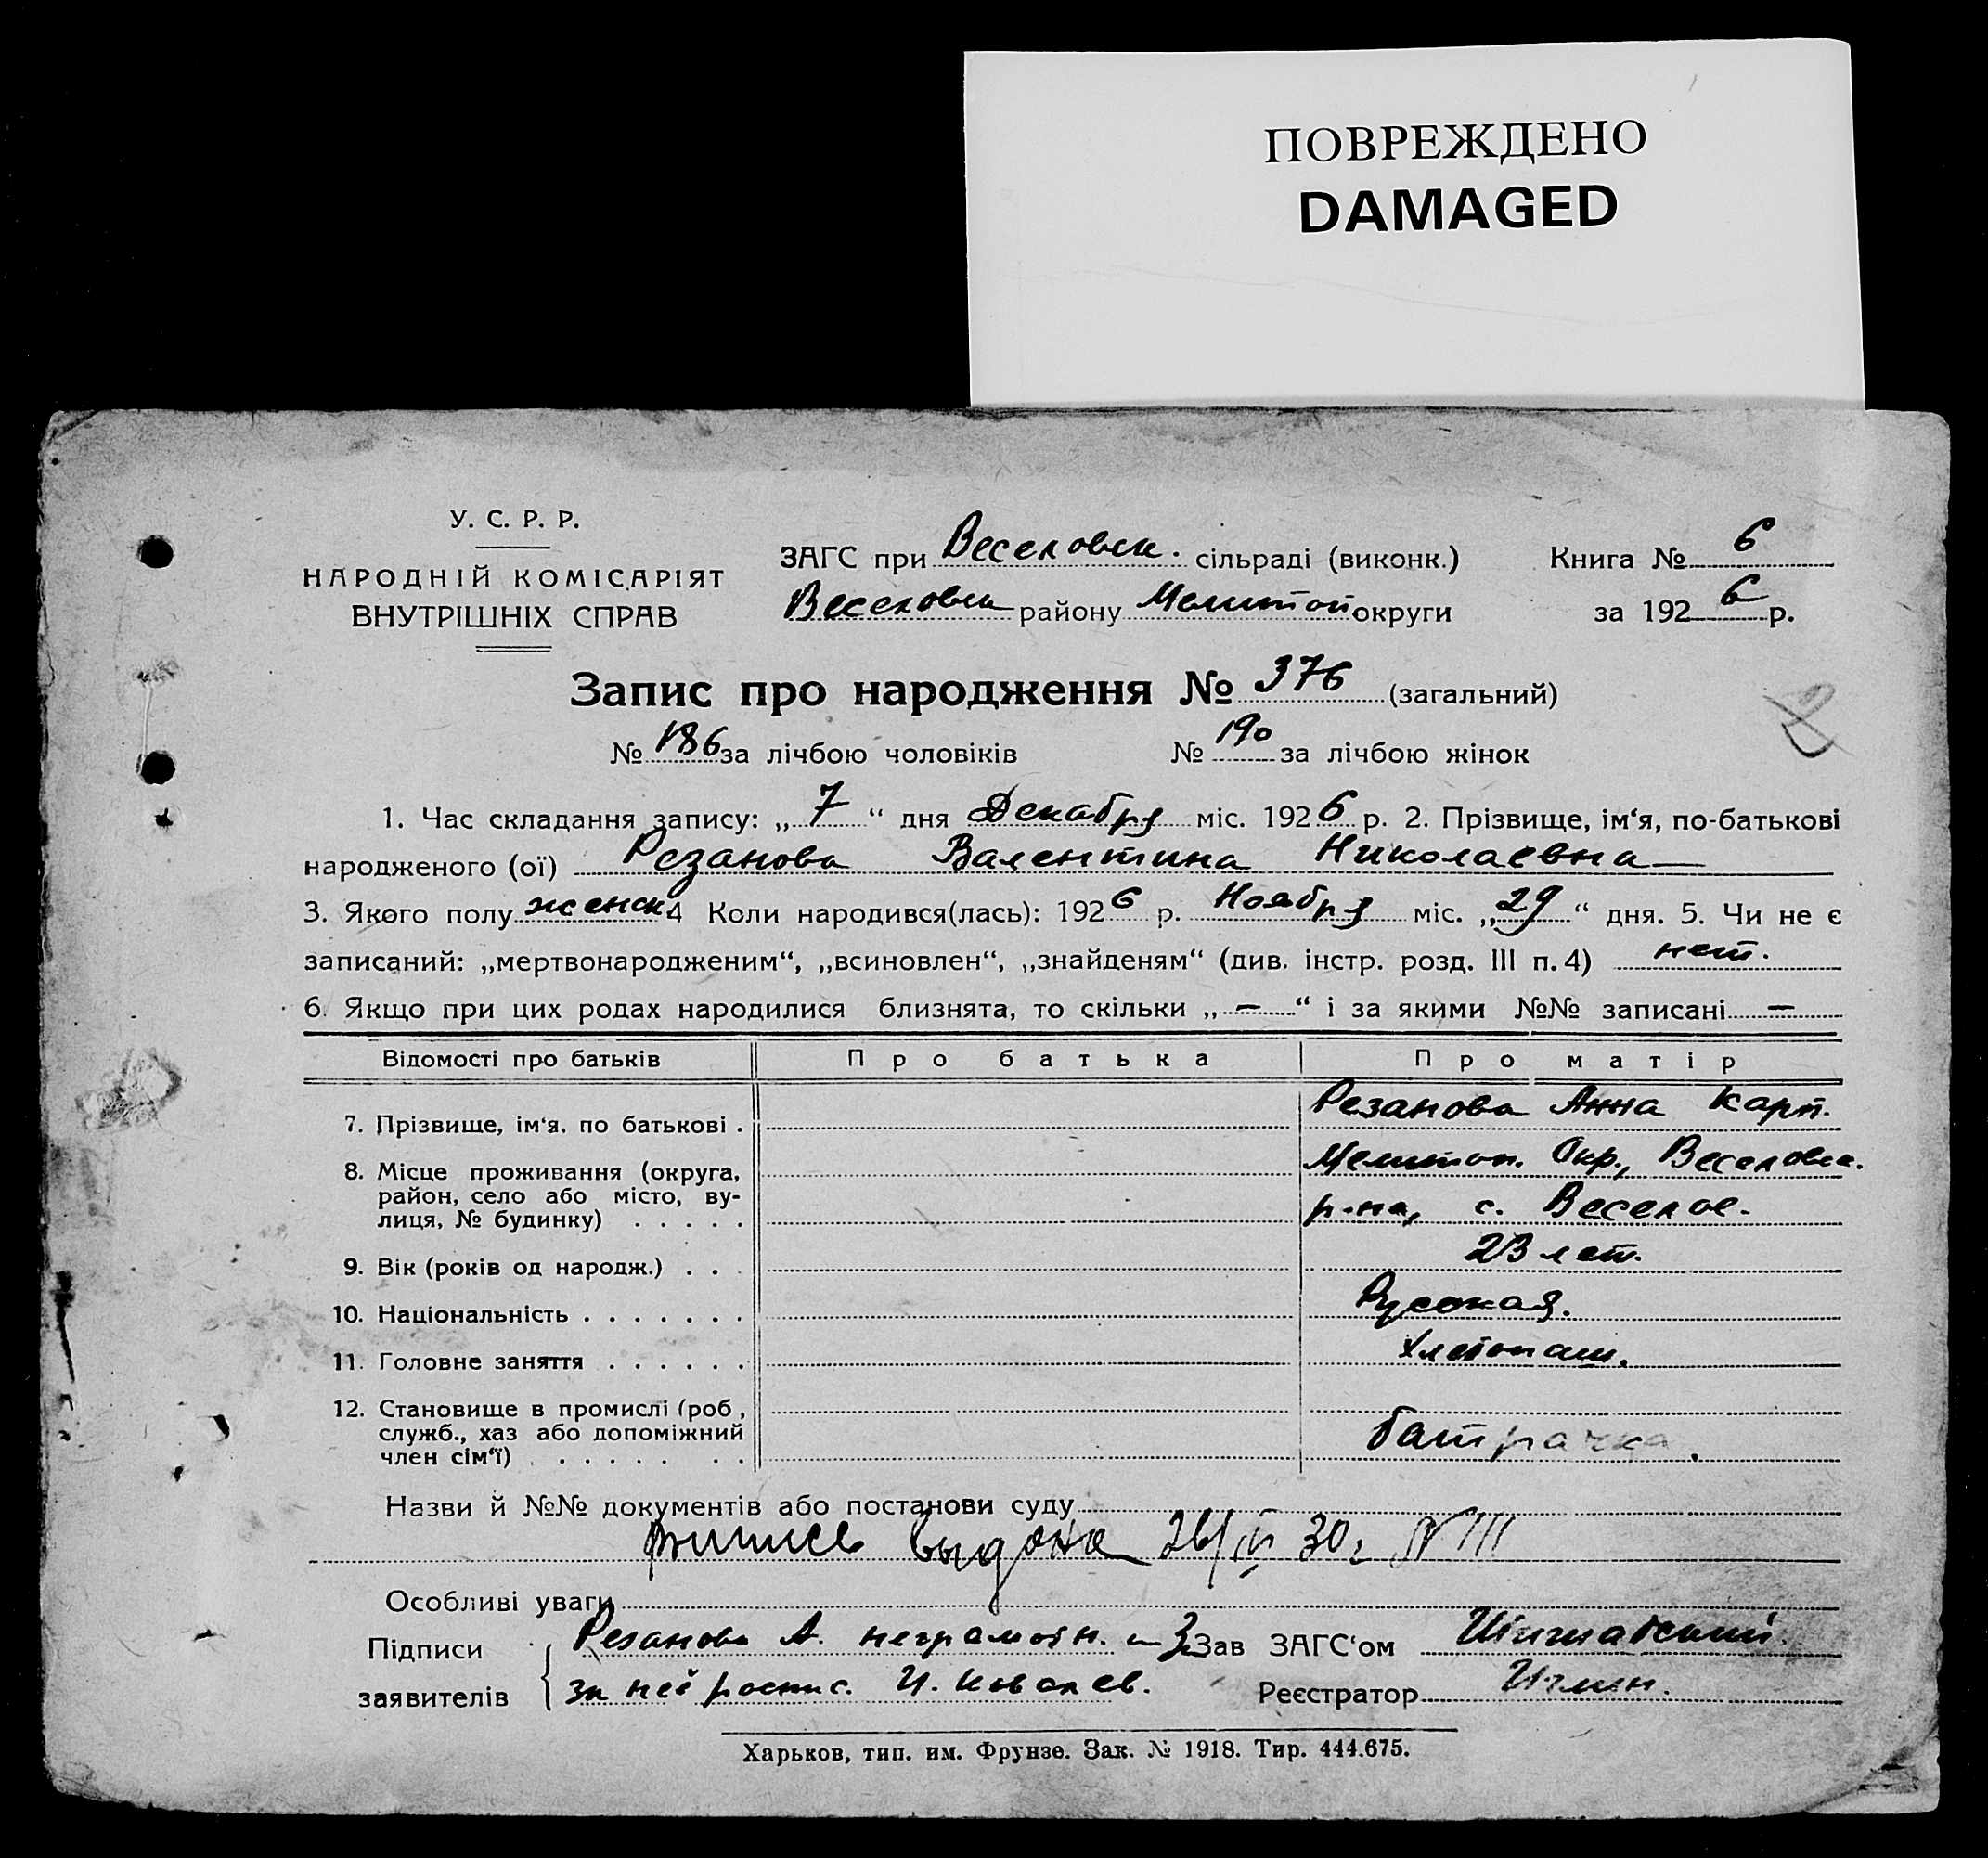 ПОВРЕЖДЕНО
DAMAGED
У. С. Р. Р.
НАРОДНІЙ КОМІСАРІЯТ
ВНУТРІШНІХ СПРАВ
ЗАГС при Веселовск. сільраді (виконк.)
Веселовск району Мелитоп округи
Книга № 6
за 1926 р.
Запис про народження № 376 (загальний)
№ 186 за лічбою чоловіків № 190 за лічбою жінок
1. Час складання запису: „7“ дня Декабря міс. 1926 р. 2. Прізвище, ім‘я, по-батькові
народженого (ої) Резанова Валентина Николаевна
3. Якого полу женск 4 Коли народився(лась): 1926 р. Ноября міс. „29“ дня. 5. Чи не є
записаний: „мертвонародженим“, „всиновлен“, „знайденям“ (див. інстр. розд. III п. 4) нет.
6. Якщо при цих родах народилися близнята, то скільки „—“ і за якими №№ записані —
Відомості про батьків Про батька Про матір
7. Прізвище, ім‘я, по батькові . Резанова Анна Карп.
8. Місце проживання (округа, Мелитоп. Окр., Веселовск.
район, село або місто, ву-
лиця, № будинку) . . . . . р-на, с. Веселое.
9. Вік (років од народж.) . . . 23 лет.
10. Національність . . . . . . . Русская.
11. Головне заняття . . . . . . Хлебопаш.
12. Становище в промислі (роб.,
служб., хаз або допоміжний
член сім‘ї) . . . . . . . . батрачка.
Назви й №№ документів або постанови суду
выдана 26/IV 30 г N 111
Особливі уваги
Підписи
заявителів
Резанова А. неграмотн.
за неё роспис. И. Ковалев.
Зав ЗАГС‘ом
Реєстратор
Харьков, тип. им. Фрунзе. Зак. № 1918. Тир. 444.675.